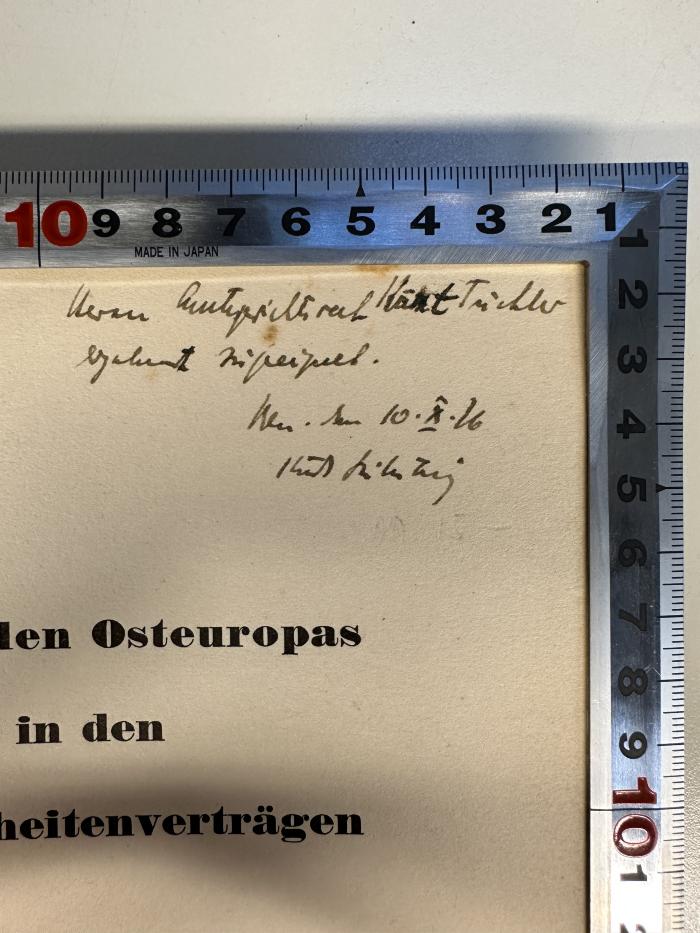 10 9 8 7 6 5 4 3 2 1
MADE IN JAPAN
1
2
3
4
5
6
7
8
9
10
1
2
Herrn Amtsgerichtsrat
ergebenst zugeeignet.
den 10.X.26
den Osteuropas
in den
heitenverträgen